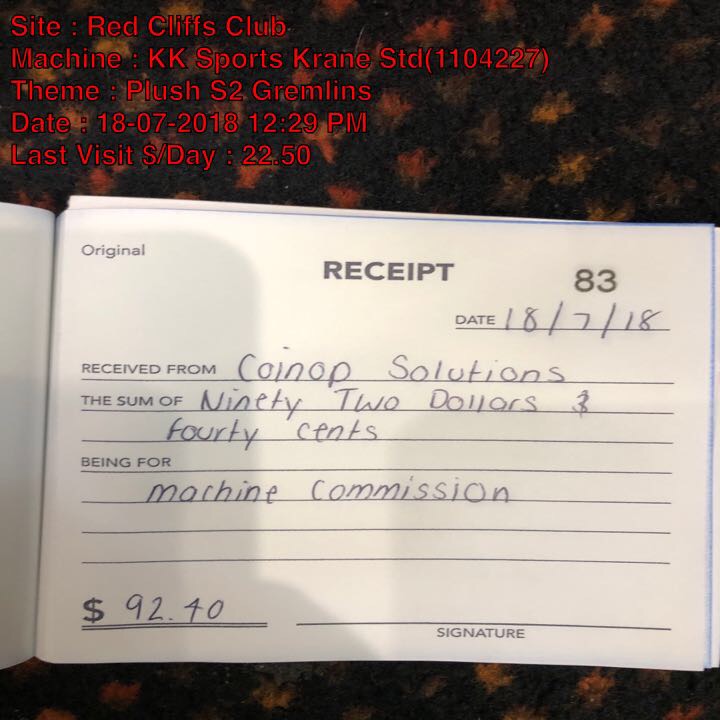 Site : Red Cliffs Club
Machine : KK Sports Krane Std(1104227)
Theme : Plush S2 Gremlins
Date : 18-07-2018 12:29 PM
Last Visit $/Day : 22.50
Original
RECEIPT 83
DATE 18/7/18
RECEIVED FROM Coinop Solutions
THE SUM OF Ninety Two Dollars &
fourty cents
BEING FOR
machine Commission
$ 92.40
SIGNATURE